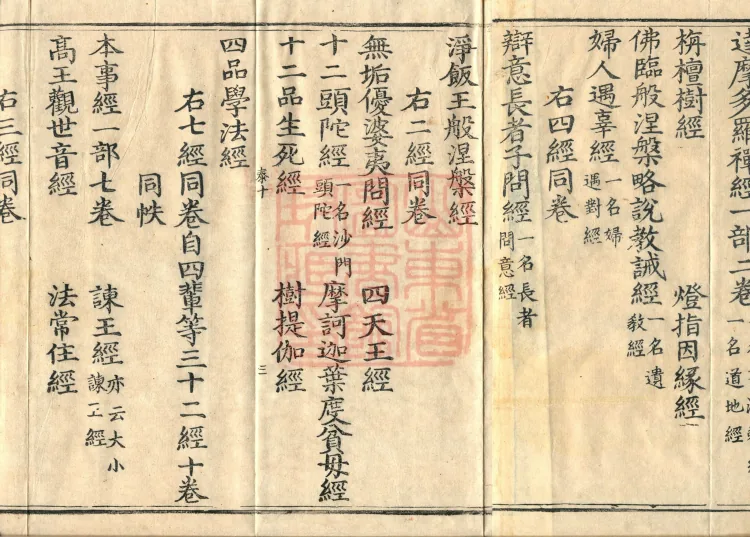 達摩多羅禪經一部二卷一名道地經
栴檀樹經　燈指因緣經
佛臨般涅槃略說教誡經一名遺教經
婦人遇辜經一名婦遇對經
右四經同卷
辯意長者子問經一名長者問意經
淨飯王般涅槃經
右二經同卷
無垢優婆夷問經　四天王經
十二頭陀經一名沙門頭陀經　摩訶迦葉度貧母經
十二品生死經　樹提伽經
十　三
四品學法經
右七經同卷自四輩等三十二經十卷
同帙
本事經一部七卷　諫王經亦云大小諫王經
髙王觀世音經　法常住經
右三經同卷